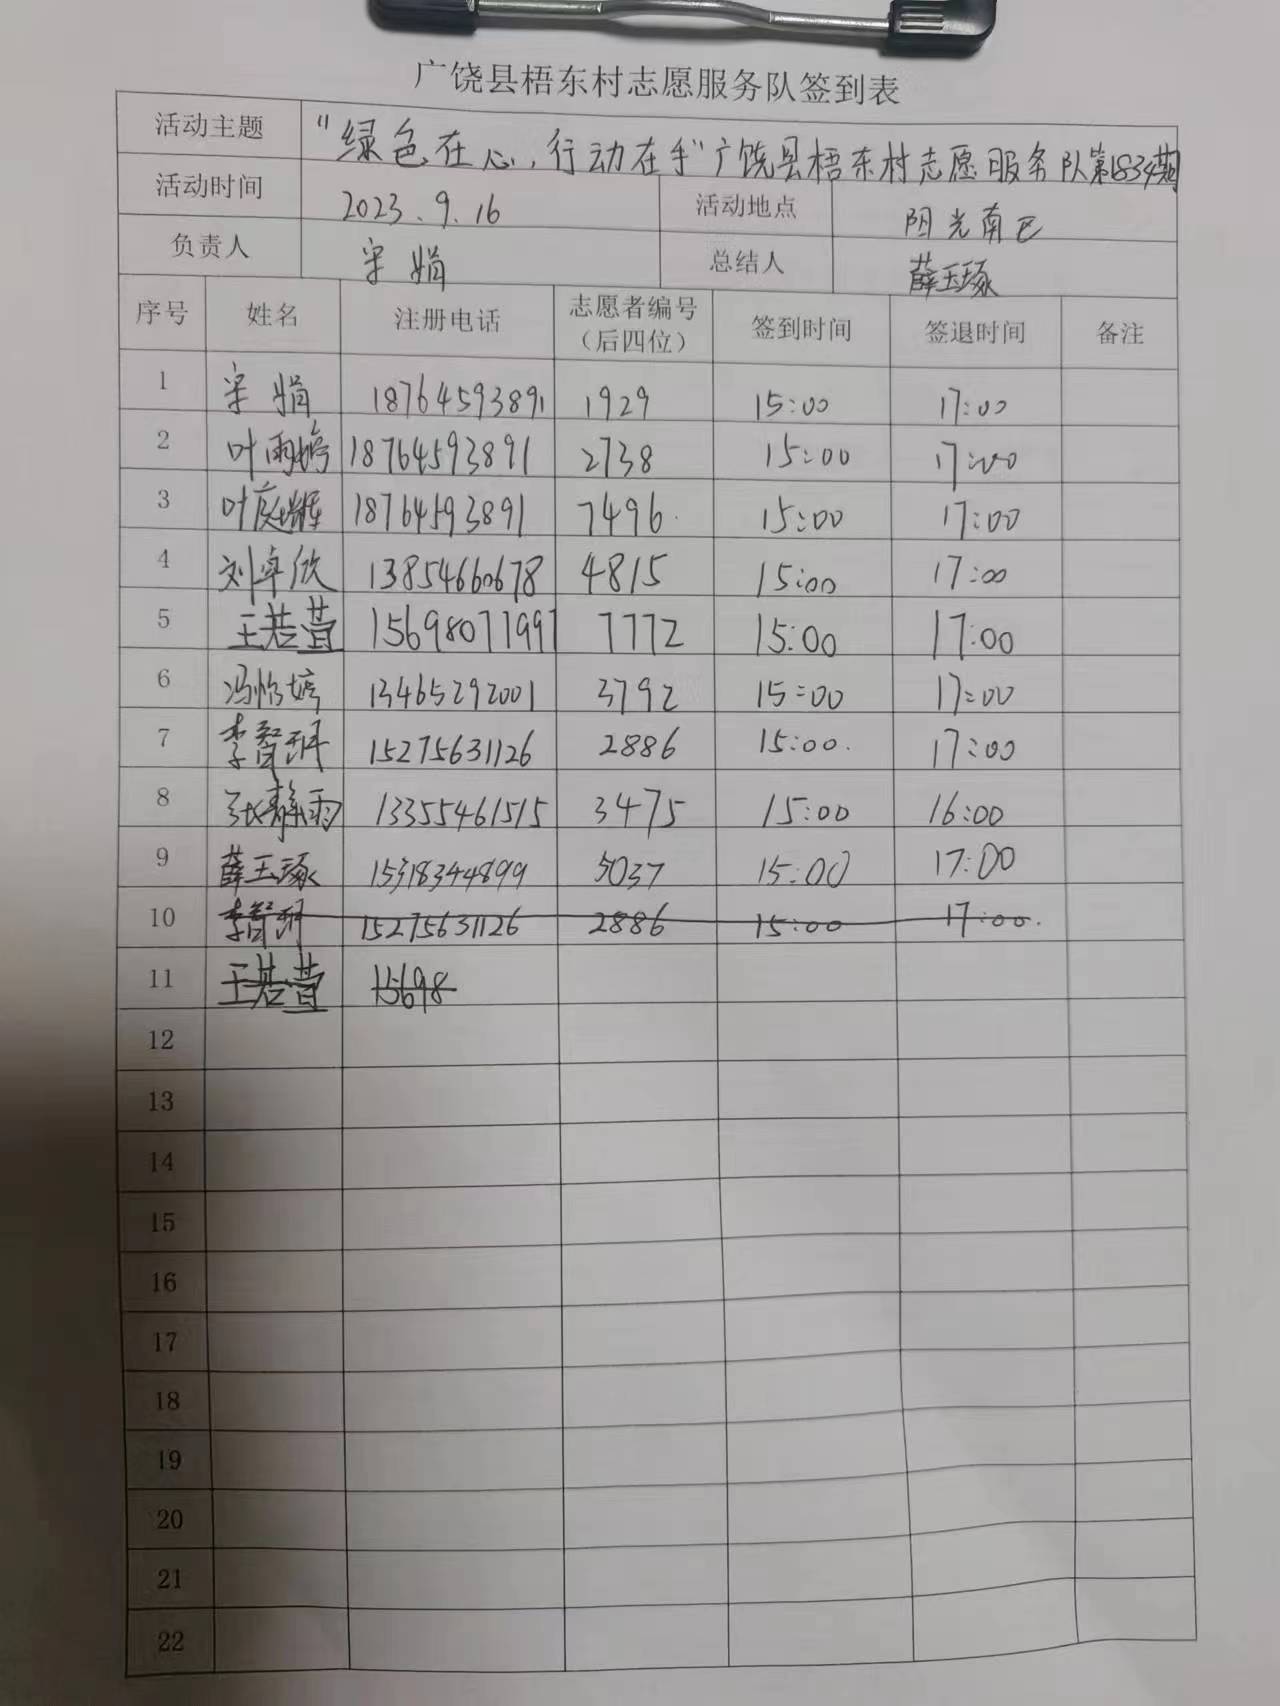 广饶县梧东村志愿服务队签到表
活动主题 "绿色在心,行动在手"广饶县梧东村志愿服务队第1834期
活动时间 2023.9.16 活动地点 阳光南区
负责人 宋娟 总结人 薛玉琢
序号 姓名 注册电话 志愿者编号（后四位） 签到时间 签退时间 备注
1 宋娟 18764593891 1929 15:00 17:00
2 叶雨婷 18764593891 2738 15:00 17:00
3 叶庭辉 18764593891 7496 15:00 17:00
4 刘卓欣 13854660678 4815 15:00 17:00
5 王若萱 15698077997 7772 15:00 17:00
6 冯怡婷 13465292001 3792 15:00 17:00
7 李智玥 15275631126 2886 15:00. 17:00
8 张静雨 13355461515 3475 15:00 16:00
9 薛玉琢 15318344899 5037 15:00 17:00
10 李智玥 15275631126 2886 15:00 17:00.
11 王若萱 15698
12
13
14
15
16
17
18
19
20
21
22